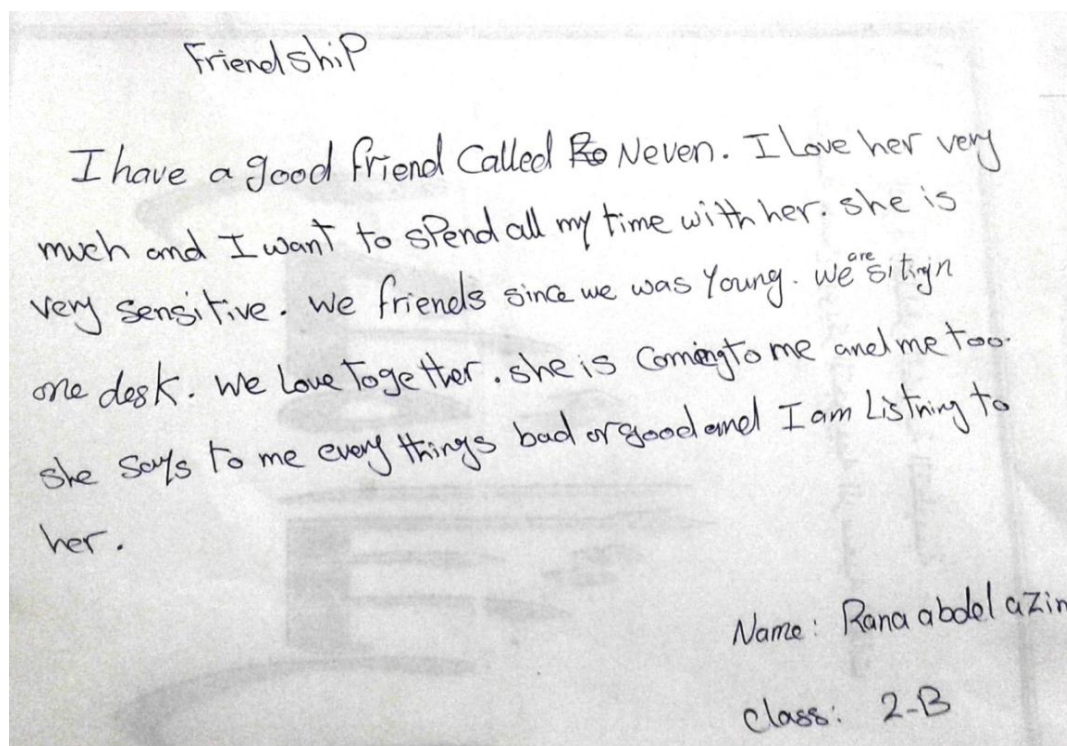 Friendship
I have a good friend Called Neven. I Love her very
much and I want to spend all my time with her. she is
very sensitive. we friends since we was Young. we are sitign
one desk. we Love Together. she is Coming to me and me too.
she says to me every things bad or good and I am Listning to
her.
Name: Rana abdel azim
Class: 2-B